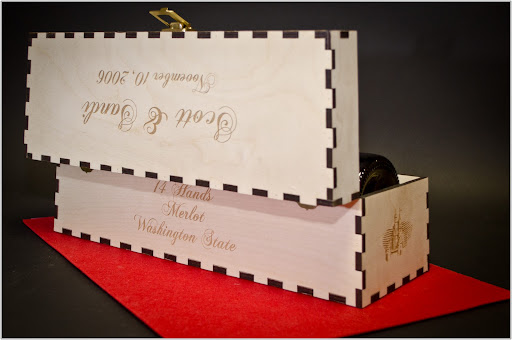 Scott & Sandi
November 10, 2006
14 Hands
Merlot
Washington State